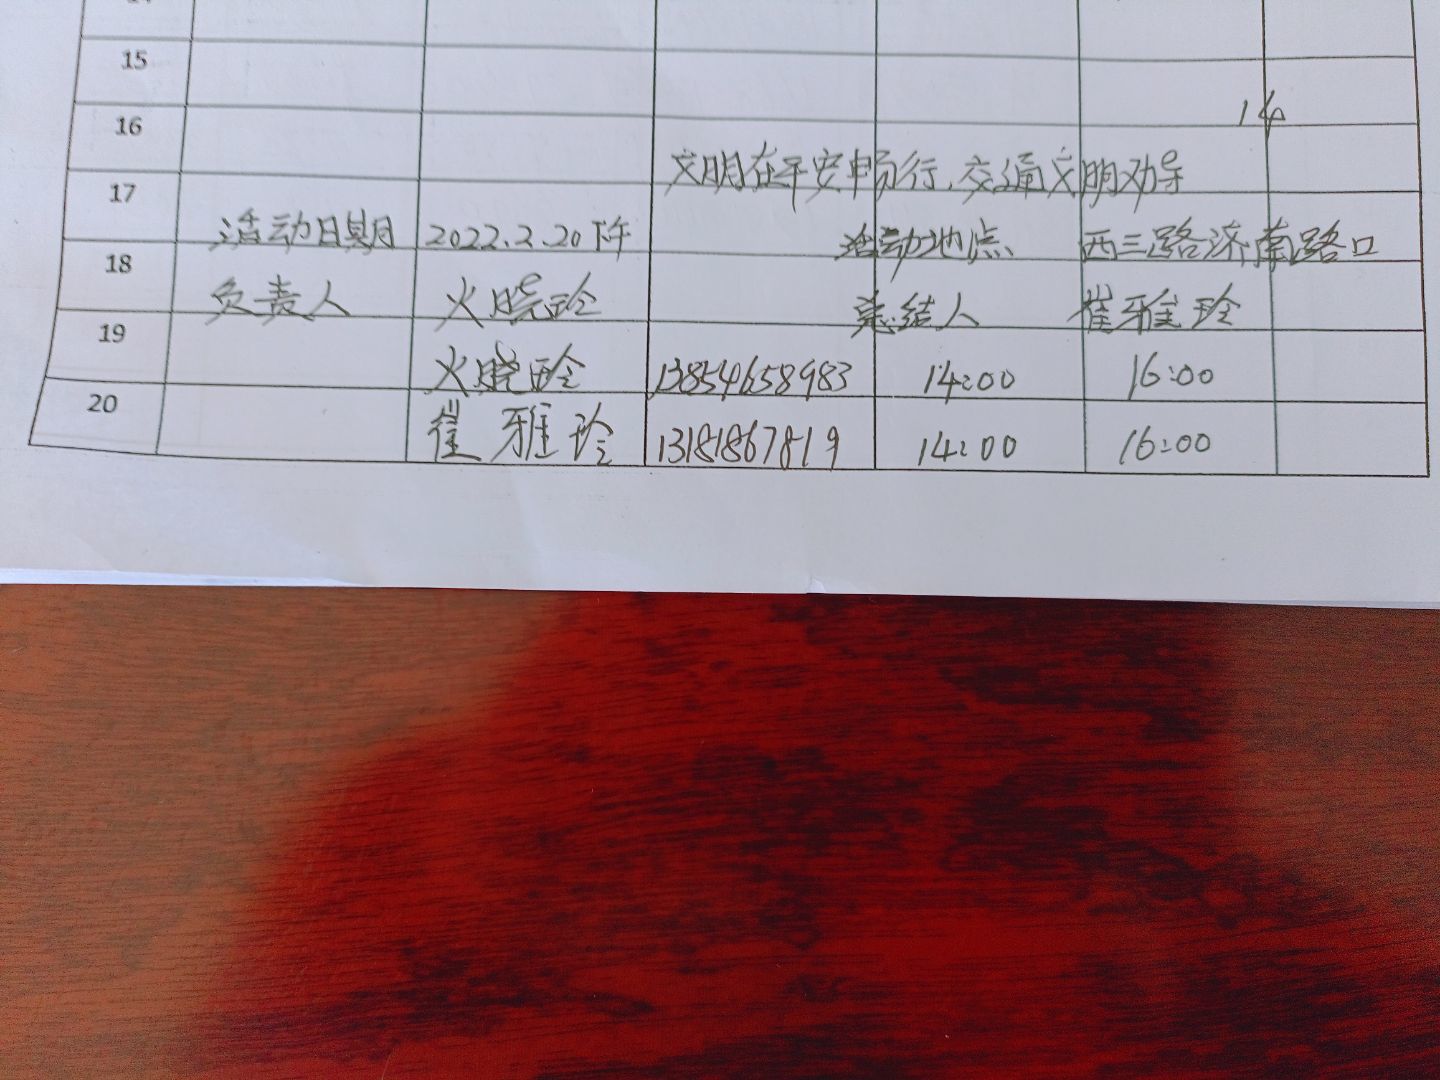 15
14
16
文明在平安畅行,交通文明劝导
17
活动日期 2022.2.20下午 活动地点 西三路济南路口
18
负责人 火晓玲 总结人 崔雅玲
19
火晓玲 13854658983 14:00 16:00
20
崔雅玲 13181867819 14:00 16:00